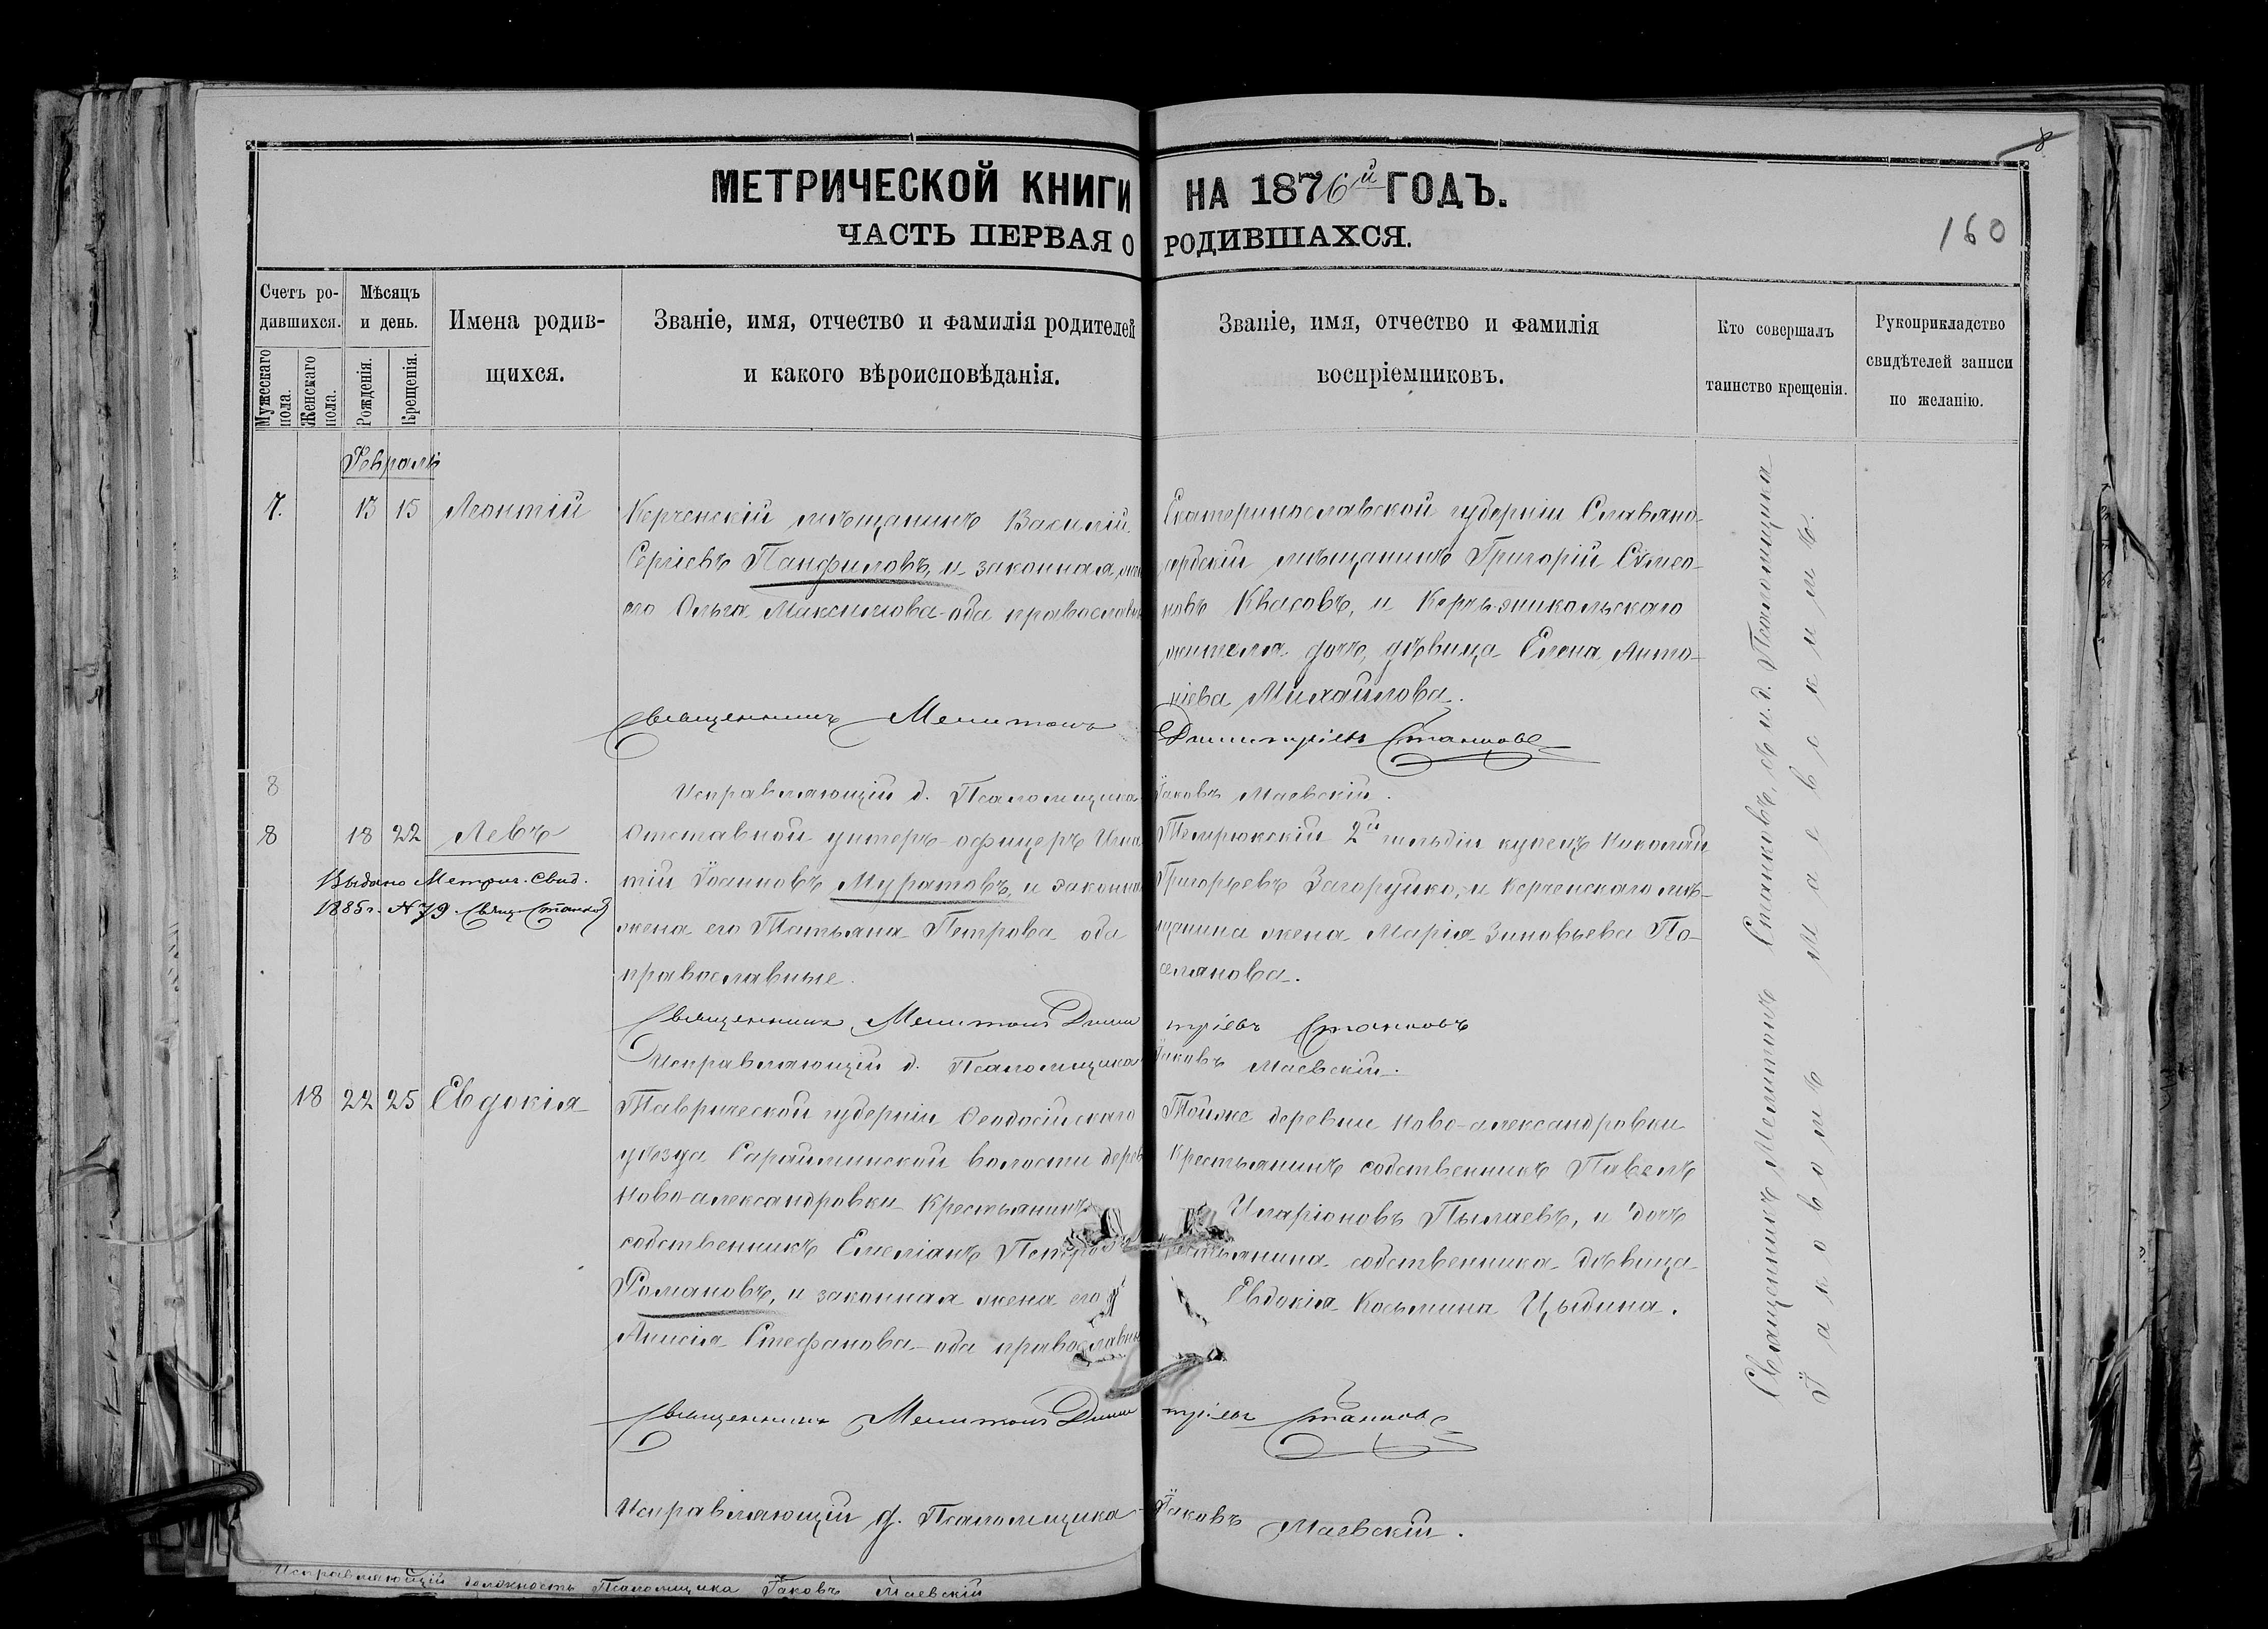 8
МЕТРИЧЕСКОЙ КНИГИ НА 1876й ГОДЪ.
160
ЧАСТЬ ПЕРВАЯ О РОДИВШАХСЯ.
Счетъ ро-
дившихся.
Мужескаго пола.
Женскаго пола.
Мѣсяцъ
и день.
Рожденія.
Крещенія.
Имена родив-
щихся.
Званіе, имя, отчество и фамилія родителей
и какого вѣроисповѣданія.
Званіе, имя, отчество и фамилія
воспріемниковъ.
Кто совершалъ
таинство крещенія.
Рукоприкладство
свидѣтелей записи
по желанію.
Февраль
7. 13 15 Леонтій
Керченскій мѣщанинъ Василій
Сергіевъ Панфиловъ, и законная
его Ольга Максимова оба православн
Екатеринославской губерніи Славяно-
сербскій мѣщанинъ Григорій Сѵмео-
новъ Квасовъ, и Керчь-эникольскаго
жителя дочь, дѣвица Елена Анто-
ніева Михайлова.
Священникъ Мелитонъ Димитріевъ Станковъ
8
Исправляющій д. Псаломщика Іаковъ Маевскій.
8 18 22 Левъ
Выдано Метрич. Свид.
1885 г. №79. Свящ. Станковъ
Отставной унтеръ-офицеръ Игна
тій Іоанновъ Муратовъ, и законна
жена его Татьяна Петрова оба
православные.
Темрюкскій 2й гильдіи купецъ Николай
Григорьевъ Загоруйко, и Керченскаго мѣ-
щанина жена Марія Зиновьева По-
селянова.
Священникъ Мелитонъ Димитріевъ Станковъ
Исправляющій д. Псаломщика Іаковъ Маевскій.
18 22 25 Евдокія
Таврической губерніи Ѳеодосійскаго
уѣзда Сарайминской волости дерев
Ново-александровки Крестьянинъ
собственникъ Емеліанъ Петровъ
Романовъ, и законная жена его
Анисія Стефанова оба православн
Тойже деревни Ново-александровки
Крестьянинъ собственникъ Павелъ
Иларіоновъ Пылаевъ, и дочь
крестьянина собственника дѣвица
Евдокія Косьмина Цыдина.
Священникъ Мелитонъ Димитріевъ Станковъ
Исправляющій д. Псаломщика Іаковъ Маевскій.
Священникъ Мелитонъ Станковъ, съ и.д. Псаломщика
Іаковомъ Маевскимъ.
Исправляющій должность Псаломщика Іаковъ Маевскій